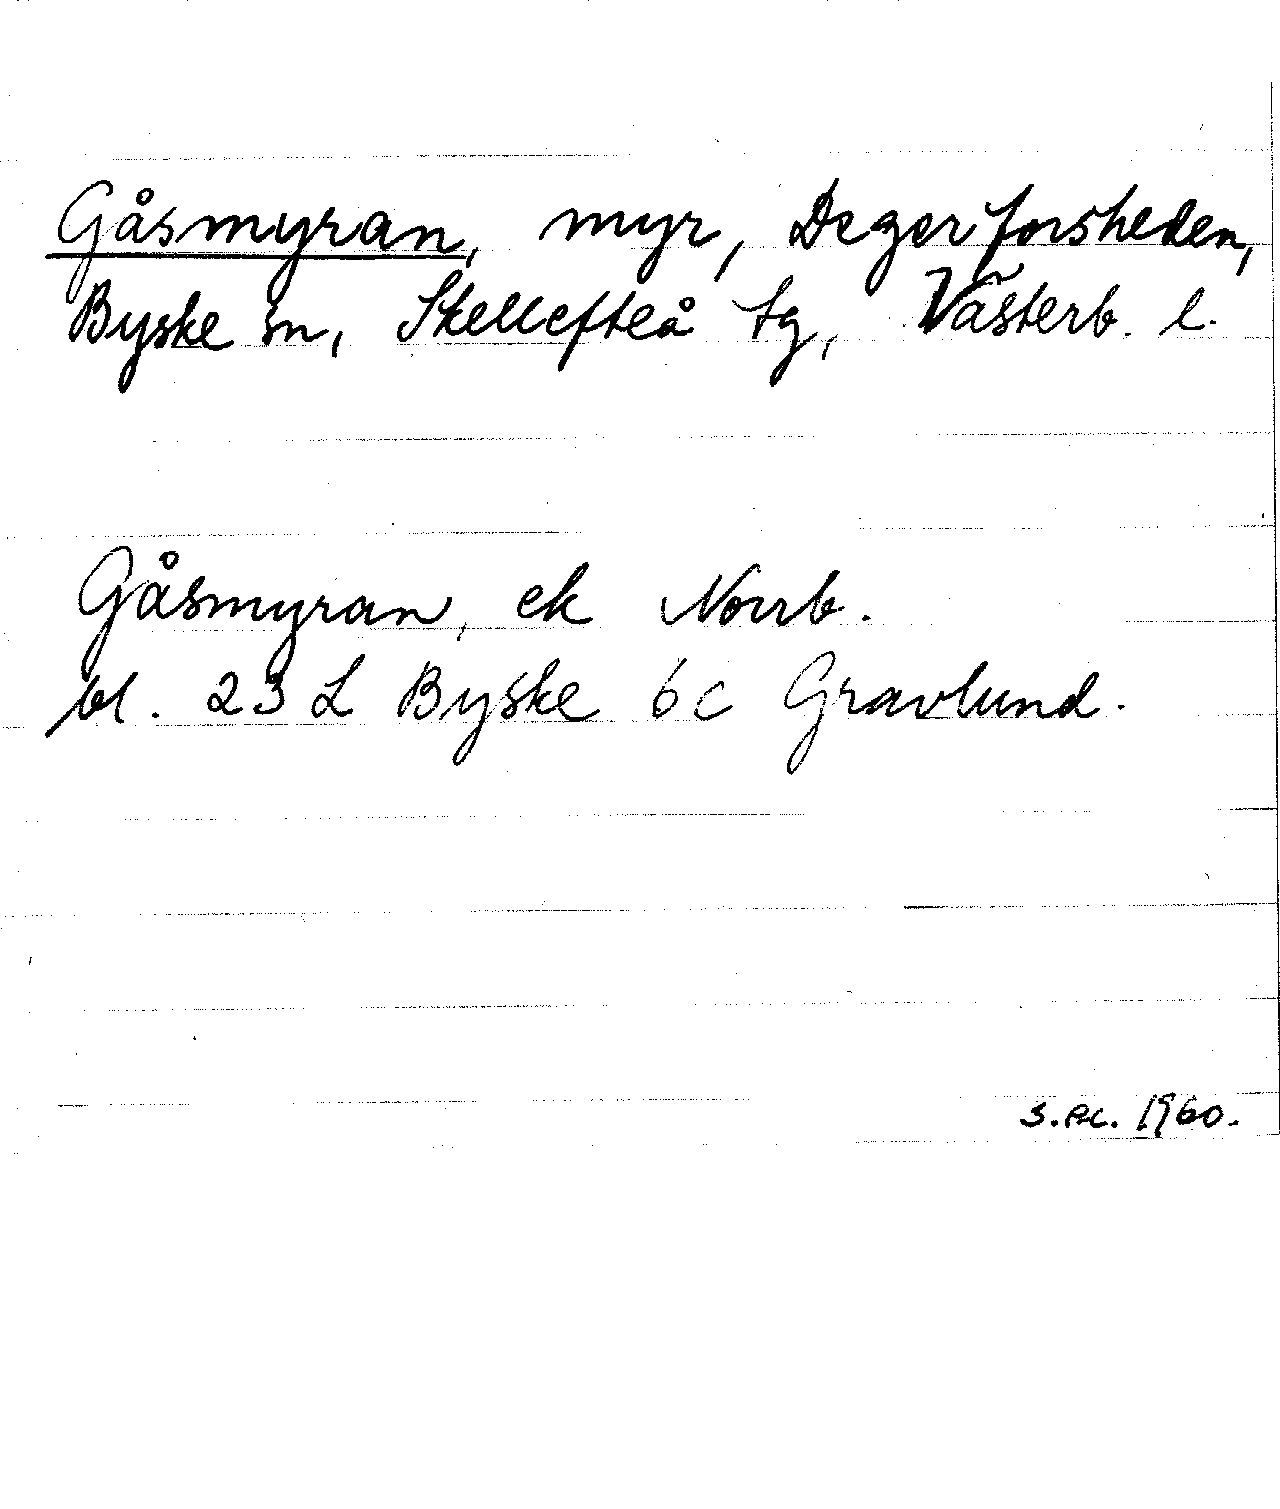 Gåsmyran, myr, Degerforsheden,
Byske sn, Skellefteå tg, Västerb. l.
Gåsmyran, ek Norrb.
bl. 23 L Byske 6 c Gravlund.
1960.